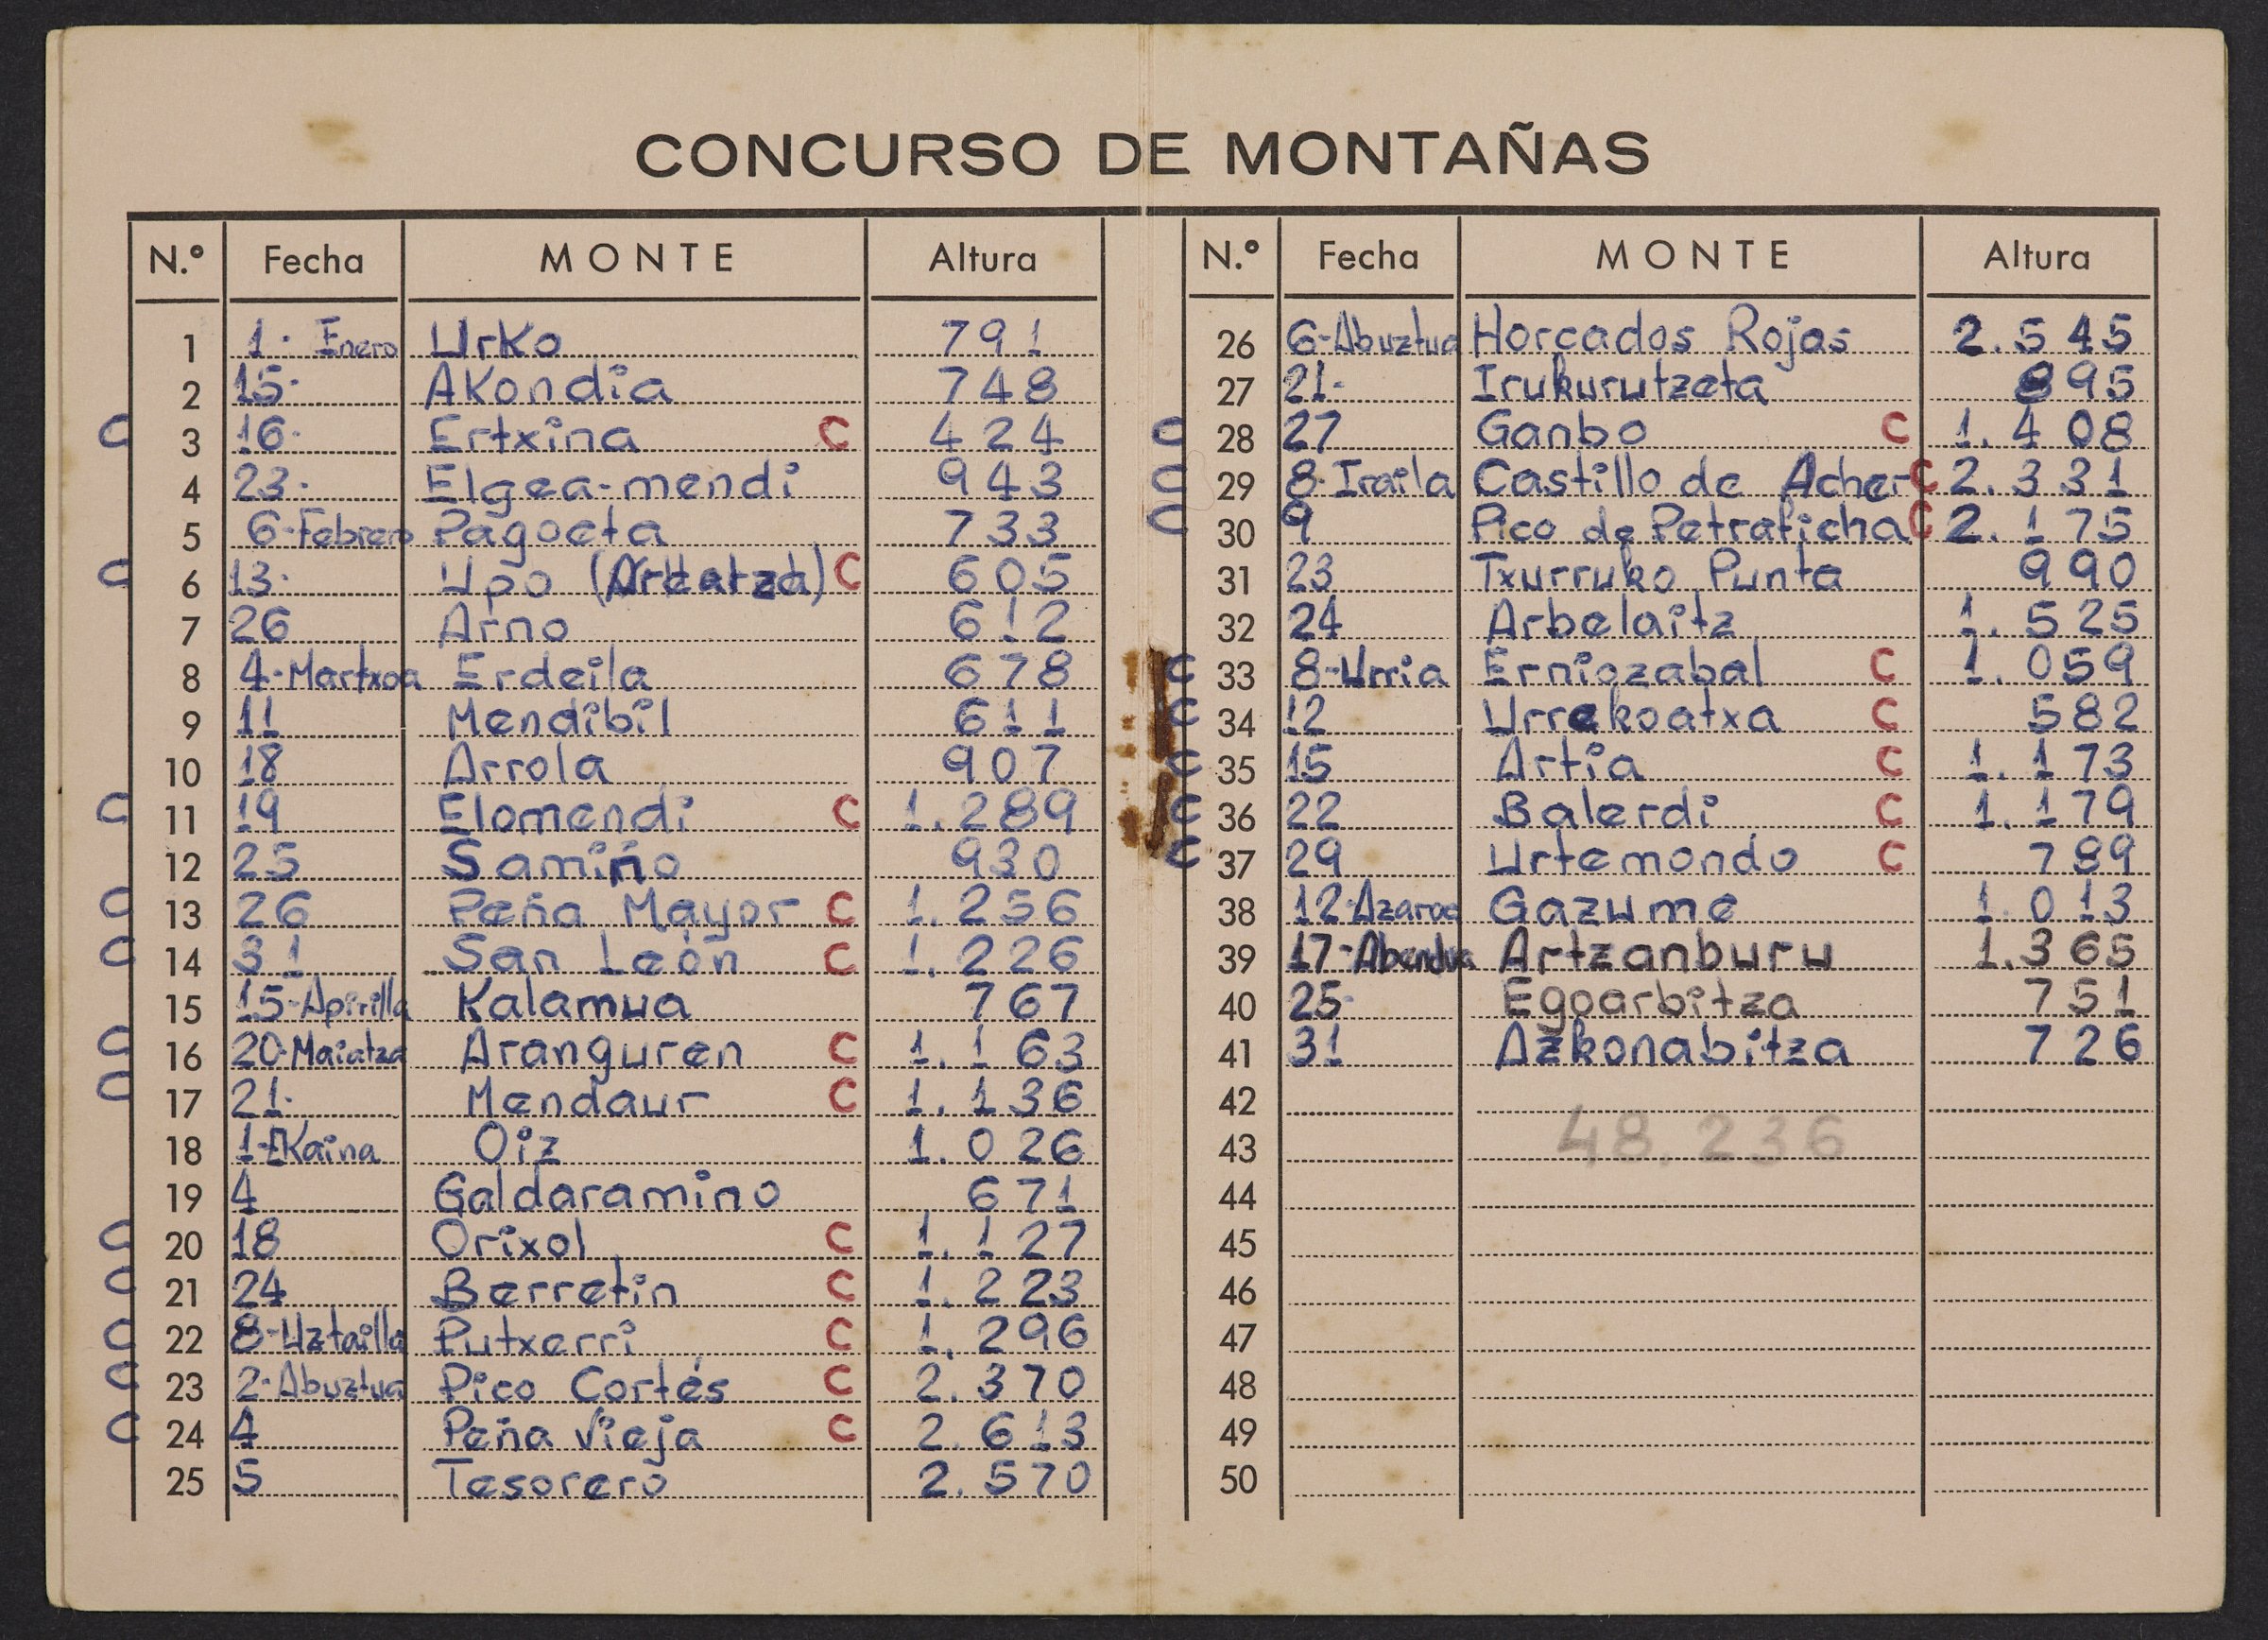 CONCURSO DE MONTAÑAS
N.º Fecha MONTE Altura
1 1· Enero Urko 791
2 15· Akondia 748
C 3 16· Ertxina C 424
4 23· Elgea-mendi 943
5 6-Febrero Pagoeta 733
C 6 13· Upo () C 605
7 26 Arno 612
8 4-Martxoa Erdeila 678
9 11 Mendibil 611
10 18 Arrola 907
C 11 19 Elomendi C 1.289
12 25 Samiño 930
C 13 26 Peña Mayor C 1.256
C 14 31 San León C 1.226
15 15-Apirilla Kalamua 767
C 16 20-Maiatza Aranguren C 1.163
C 17 21· Mendaur C 1.136
18 1-EKaina Oiz 1.026
19 4 Galdaramino 671
C 20 18 Orixol C 1.127
C 21 24 Berretin C 1.223
C 22 8-Uztailla Putxerri C 1.296
C 23 2-Abuztua Pico Cortés C 2.370
C 24 4 Peña Vieja C 2.613
25 5 Tesorero 2.570
N.º Fecha MONTE Altura
26 6-Abuztua Horcados Rojos 2.545
27 21- Irukurutzeta 895
C 28 27 Ganbo C 1.408
C 29 8-Iraila Castillo de Acher C 2.331
C 30 9 Pico de Petraficha C 2.175
31 23 Txurruko Punta 990
32 24 Arbelaitz 1.525
C 33 8-Urria Erniozabal C 1.059
C 34 12 Urrekoatxa C 582
C 35 15 Artia C 1.173
C 36 22 Balerdi C 1.179
C 37 29 Urtemondo C 789
38 12-Azaroa Gazume 1.013
39 17-Abendua Artzanburu 1.365
40 25- Egoarbitza 751
41 31 Azkonabitza 726
42
43 48.236
44
45
46
47
48
49
50